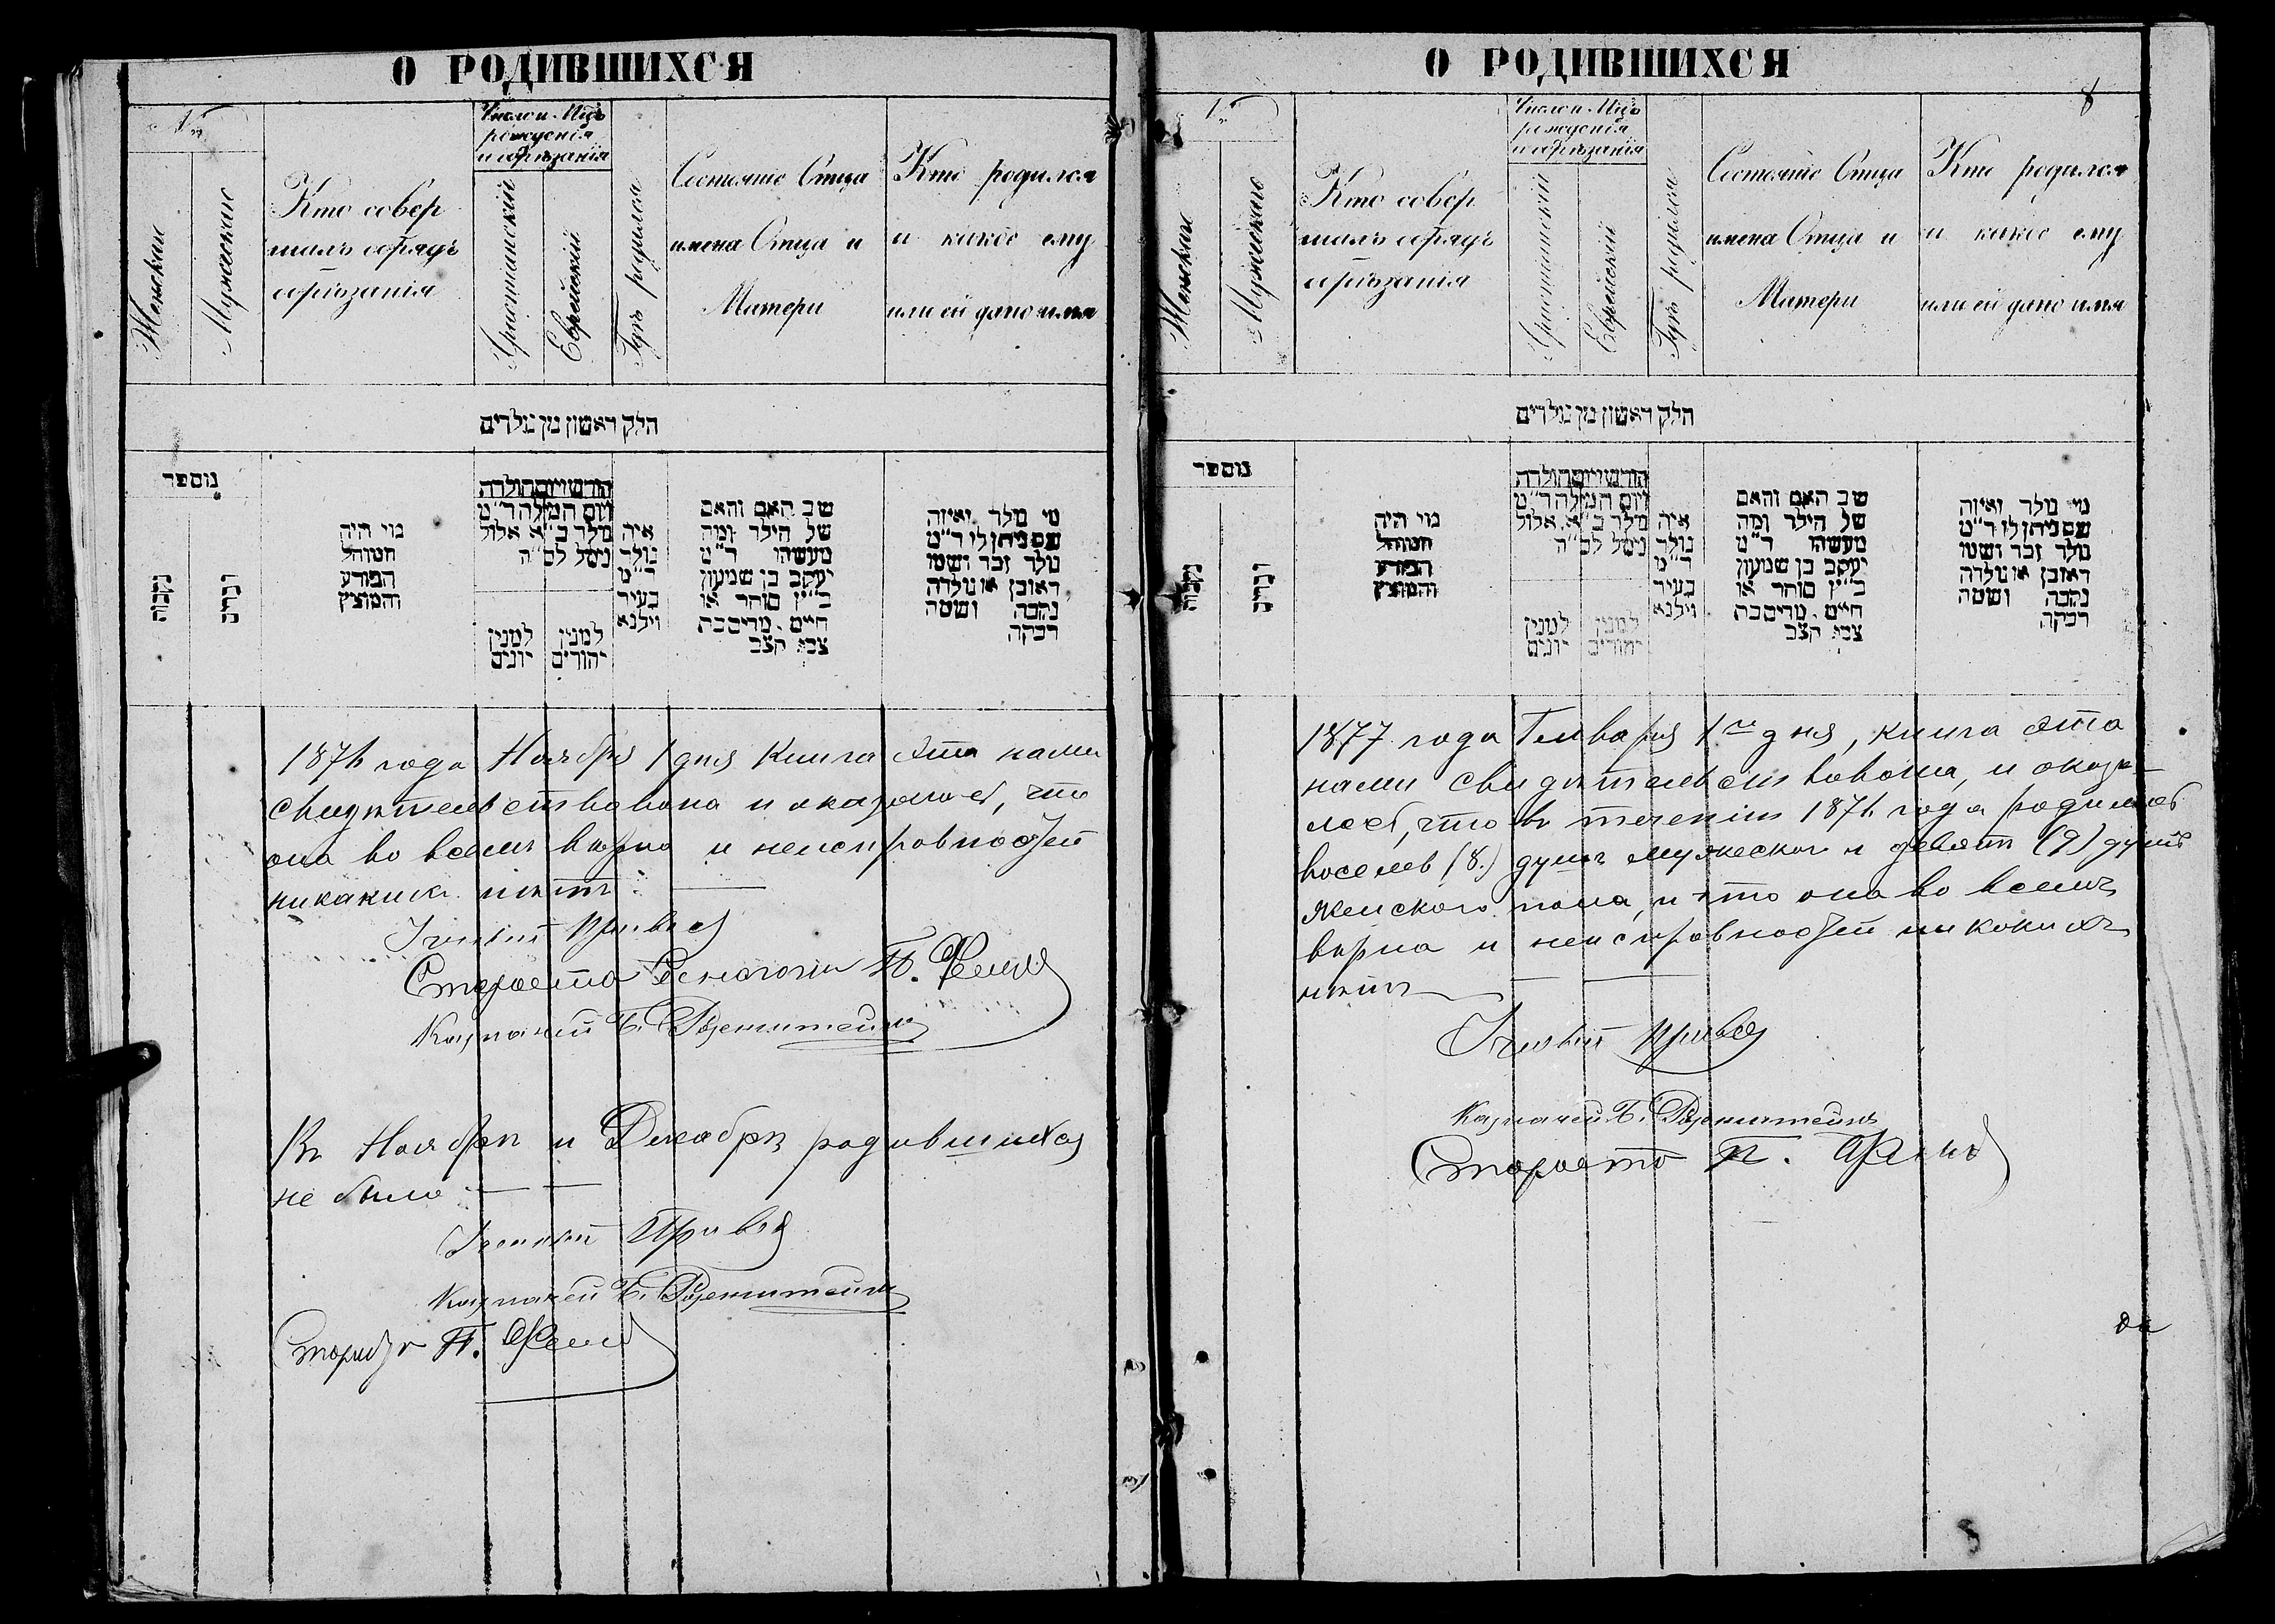 О РОДИВШИХСЯ
№
Женскаго
Мужескаго
Кто совер
шалъ обрядъ
обрѣзанія
Число и Мцъ
рожденія
и обрѣзанія
Христіанскій
Еврейскій
Гдѣ родился
Состояніе Отца
имена Отца и
Матери
Кто родился
и какое ему
или ей дано имя
חלק ראשון מן נולדים
מספר
נקבות
זכרים
מי היה
המוהל
הפורע
והמוצץ
חודש ויום הולדה
ויום המילה ד״מ
נולד כ״א אלול
ניסל לס״ה
למנין
יונים
למנין
יהודים
איה
נולד
ד״מ
בעיר
וילנא
שב האם והאם
של הילד ומה
מעשהו ד״מ
יעקב בן שמעון
כ״ץ סוחר או
חיים. מרים בת
צבי קצב
מי נולד ואיזה
שם ניתן לו ד״מ
נולד זכר ושמו
ראובן או נולדה
נקבה ושמה
רבקה
1876 года Ноября 1 дня книга эта нами
свидѣтельствована и оказалось, что
она во всемъ вѣрно и неисправностей
никакихъ нѣтъ
Староста Синагоги П.
Казначей Б. Рубенштейнъ
Въ Ноябрѣ и Декабрѣ родившихся
не было
Казначей Б. Рубенштейнъ
Староста П.
О РОДИВШИХСЯ
8
№
Женскаго
Мужескаго
Кто совер
шалъ обрядъ
обрѣзанія
Число и Мцъ
рожденія
и обрѣзанія
Христіанскій
Еврейскій
Гдѣ родился
Состояніе Отца
имена Отца и
Матери
Кто родился
и какое ему
или ей дано имя
חלק ראשון מן נולדים
מספר
נקבות
זכרים
מי היה
המוהל
הפורע
והמוצץ
חודש ויום הולדה
ויום המילה ד״מ
נולד כ״א אלול
ניסל לס״ה
למנין
יונים
למנין
יהודים
איה
נולד
ד״מ
בעיר
וילנא
שב האם והאם
של הילד ומה
מעשהו ד״מ
יעקב בן שמעון
כ״ץ סוחר או
חיים. מרים בת
צבי קצב
מי נולד ואיזה
שם ניתן לו ד״מ
נולד זכר ושמו
ראובן או נולדה
נקבה ושמה
רבקה
1877 года Генваря 1го дня, книга эта
нами свидѣтельствована, и оказа-
лось, что въ теченіи 1876 года родилось
восемь (8.) душъ мужескаго и девять (9) душъ
женскаго пола, и что она во всемъ
вѣрна и неисправностей никакихъ
нѣтъ
Казначей Б. Рубенштейнъ
Староста П.